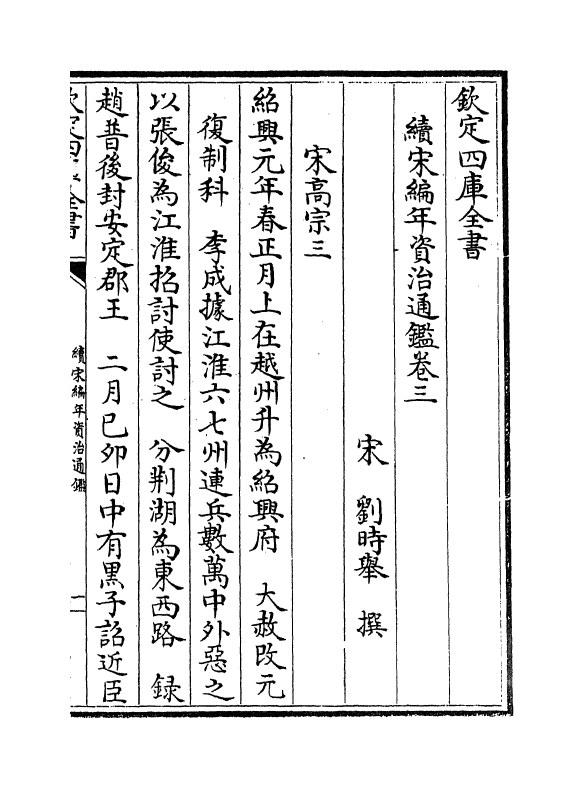 欽定四庫全書
續宋編年資治通鑑卷三
宋 劉時舉 撰
宋高宗三
紹興元年春正月上在越州升為紹興府 大赦改元
復制科 李成據江淮六七州連兵數萬中外惡之
以張俊為江淮招討使討之 分荆湖為東西路 録
趙普後封安定郡王 二月已卯日中有黒子詔近臣
欽定四庫全書
續宋編年資治通鑑